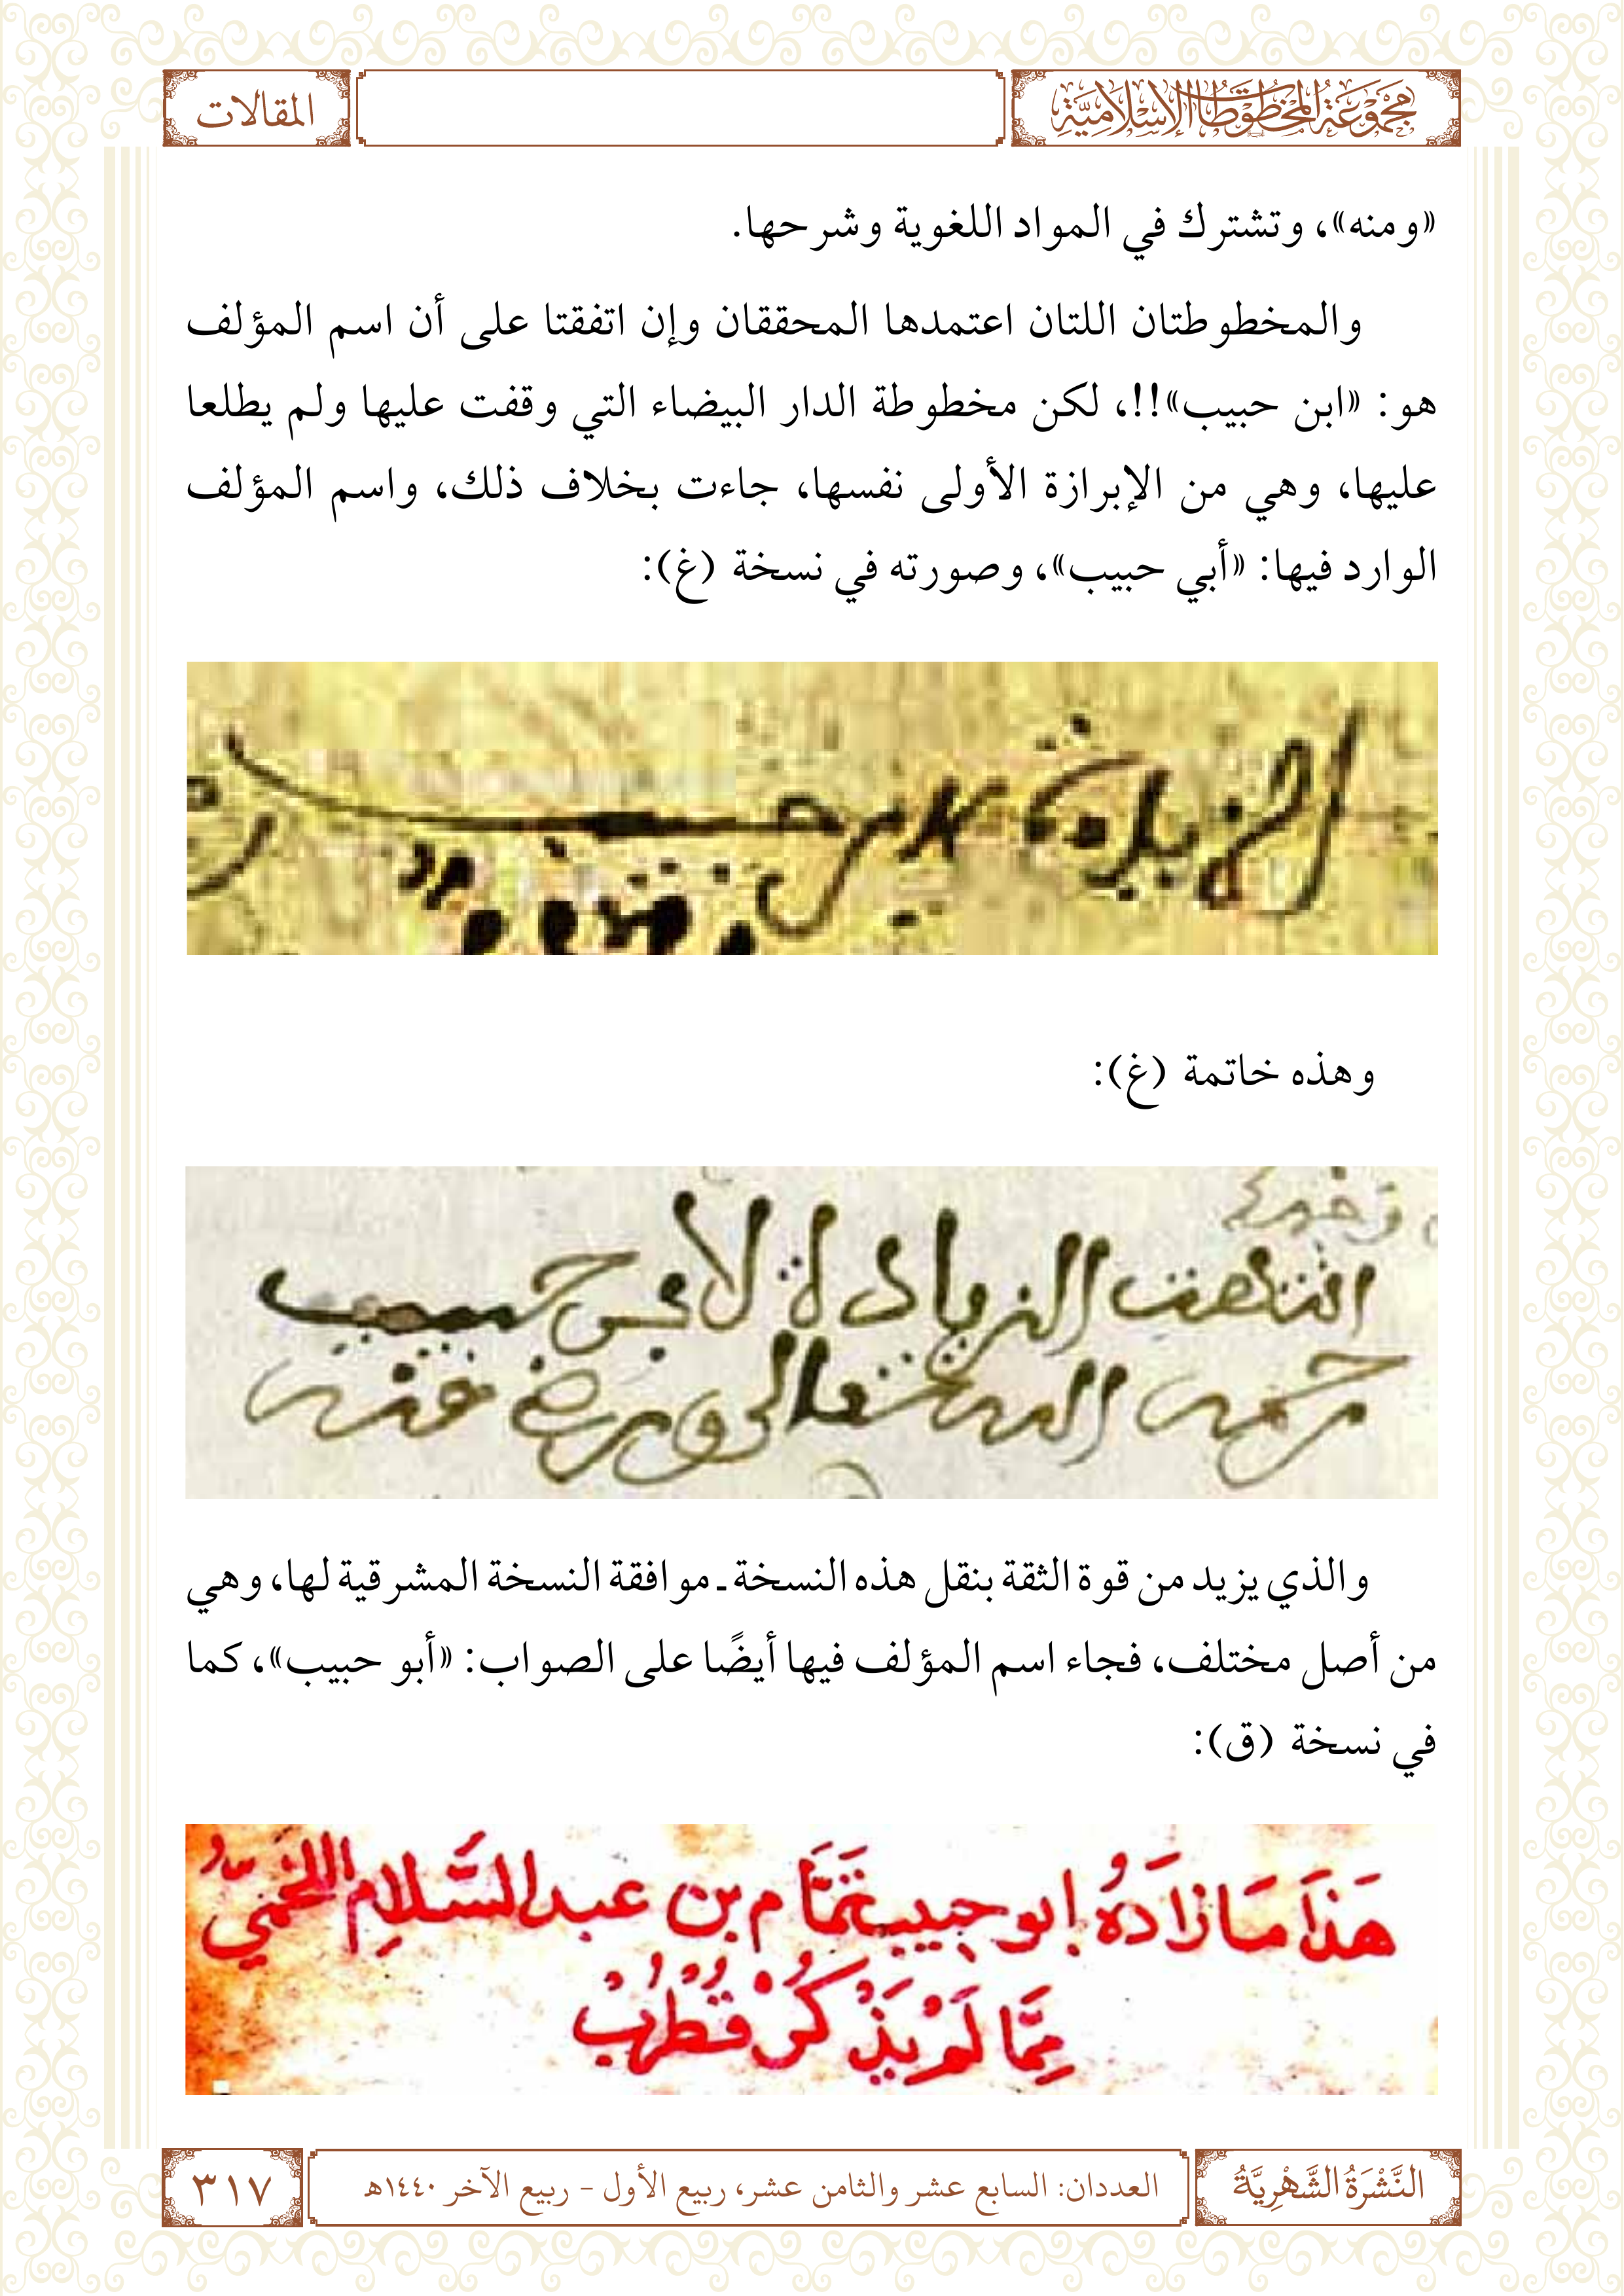 مجموعة المخطوطات الإسلامية
المقالات
«ومنه»، وتشترك في المواد اللغوية وشرحها.
والمخطوطتان اللتان اعتمدها المحققان وإن اتفقتا على أن اسم المؤلف
هو: «ابن حبيب»!!، لكن مخطوطة الدار البيضاء التي وقفت عليها ولم يطلعا
عليها، وهي من الإبرازة الأولى نفسها، جاءت بخلاف ذلك، واسم المؤلف
الوارد فيها: «أبي حبيب»، وصورته في نسخة (غ):
وهذه خاتمة (غ):
انتهت الزيادة لأبي حبيب
رحمه الله تعالى ورضي عنه
والذي يزيد من قوة الثقة بنقل هذه النسخة ـ موافقة النسخة المشرقية لها، وهي
من أصل مختلف، فجاء اسم المؤلف فيها أيضًا على الصواب: «أبو حبيب»، كما
في نسخة (ق):
هَذَا مَا زَادَهُ ابو حبيب تمَّام بن عبد السَّلامِ اللخميّ
مِمَّا لَمْ يَذْكُرْ قُطْرُبْ
النَّشْرَةُ الشَّهْرِيَّةُ
العددان: السابع عشر والثامن عشر، ربيع الأول - ربيع الآخر ١٤٤٠هـ
٣١٧